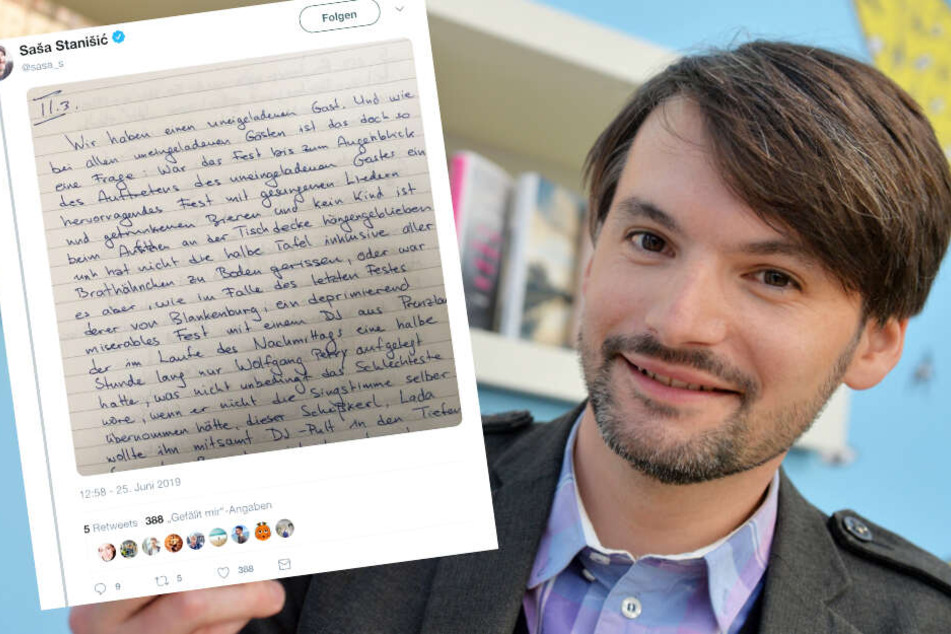 Folgen
Saša Stanišić
@sasa_s
II.3.
Wir haben einen uneigeladenen Gast. Und wie
bei allen uneingeladenen Gästen ist das doch so
eine Frage: War das Fest bis zum Augenblick
des Auftretens des uneingeladenen Gastes ein
hervorragendes Fest mit gesungenen Liedern
und getrunkenen Bieren und kein Kind ist
beim an der Tischdecke hängengeblieben
und hat nicht die halbe Tafel inklusive aller
Brathähnchen zu Boden gerissen, oder war
es aber, wie im Falle des letzten Festes
derer von Blankenburg, ein deprimierend
miserables Fest mit einem DJ aus Prenzlau
der im Laufe des Nachmittags eine halbe
Stunde lang nur Wolfgang Petry aufgelegt
hatte, was nicht unbedingt das Schlechteste
wäre, wenn er nicht die Singstimme selber
übernommen hätte, dieser Scheißkerl. Lada
wollte ihn mitsamt DJ-Pult in den Tiefen
12:58 - 25. Juni 2019
5 Retweets 388 „Gefällt mir“-Angaben
9 5 388